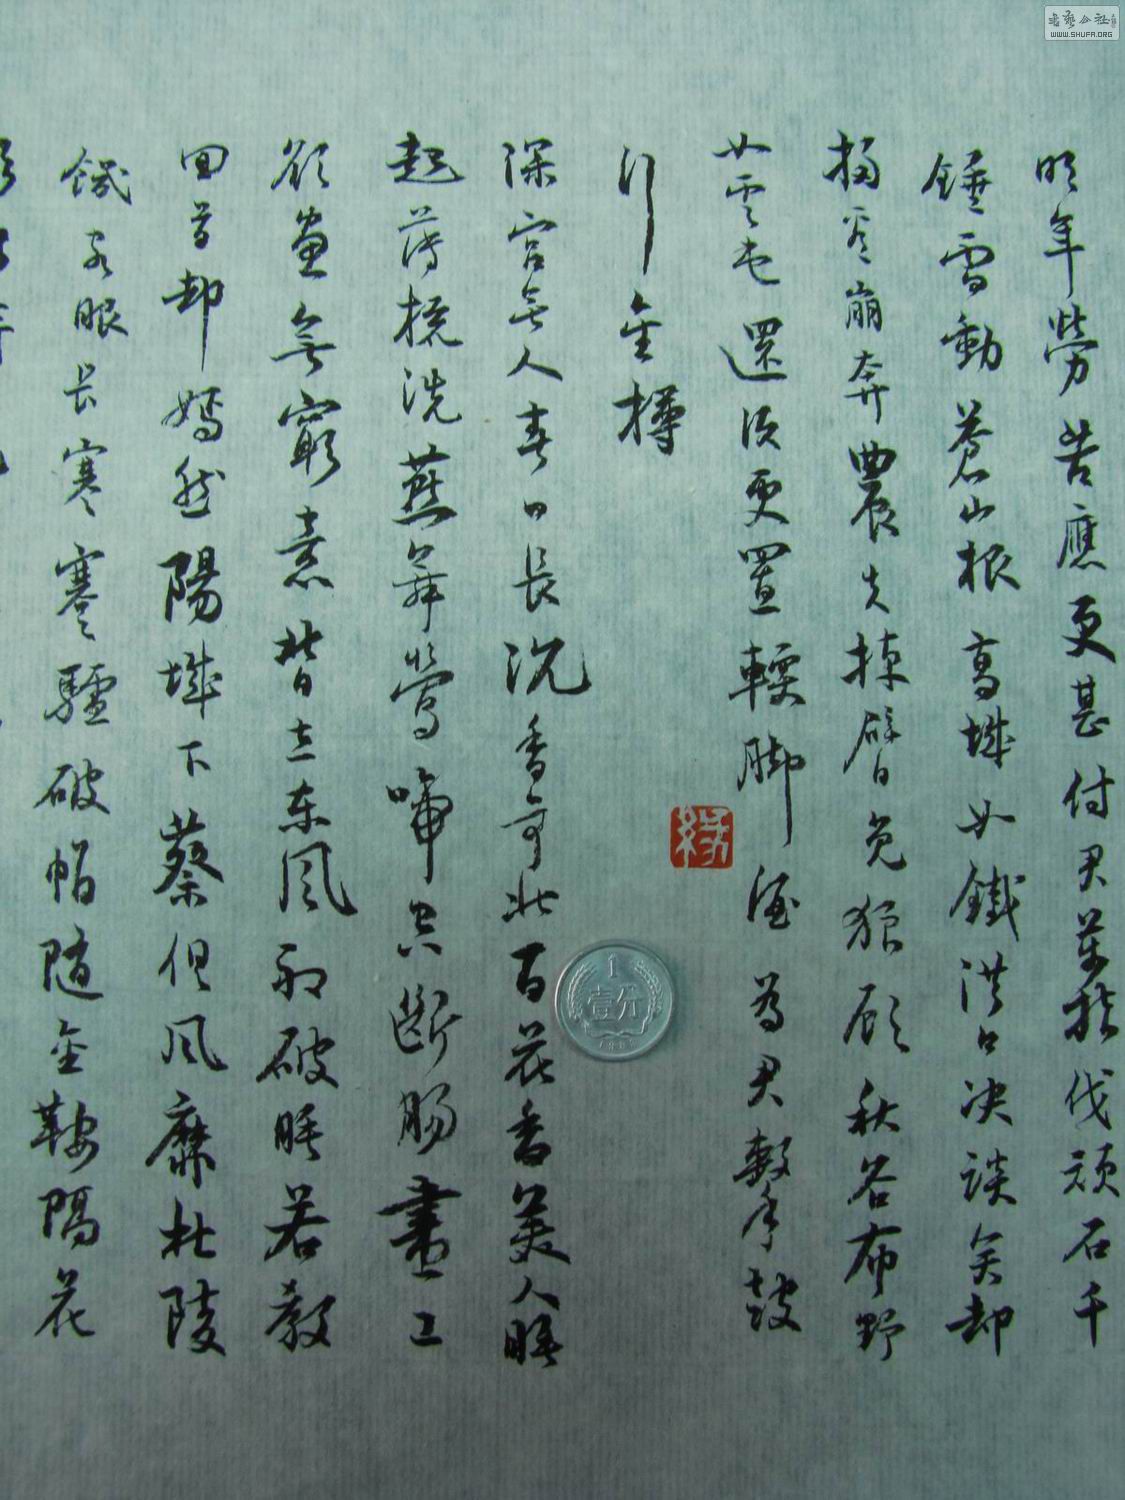 明年勞苦應更甚付君萬指伐頑石千
錘雷動蒼山根高城如鐵洪口決談笑却
掃看崩奔農夫掉臂免狼顧秋谷布野
如雲屯還須更置輭脚酒為君擊鼓
行金樽
深宮無人春日長沉香亭北百花香美人睡
起薄梳洗燕舞鶯啼空斷腸畫工
欲畫無窮意背立東風初破睡若教
回首却嫣然陽城下蔡俱風靡杜陵
饑客眼長寒蹇驢破帽隨金鞍隔花
1
壹分
WWW.SHUFA.ORG